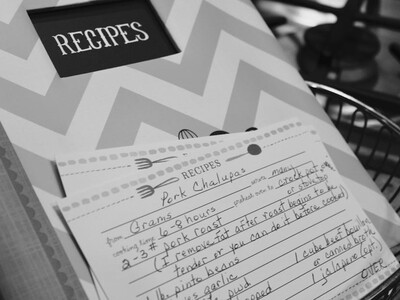 RECIPES
RECIPES
Pork Chalupas
from Grams serves many
cooking time 6-8 hours preheat oven to crock pot or stove top
2-3# pork roast
(I remove fat after roast begins to be
tender or you can do it before cooked)
pinto beans
garlic 1 cube beef
or canned broth
1 jalapeno (opt.)
OVER